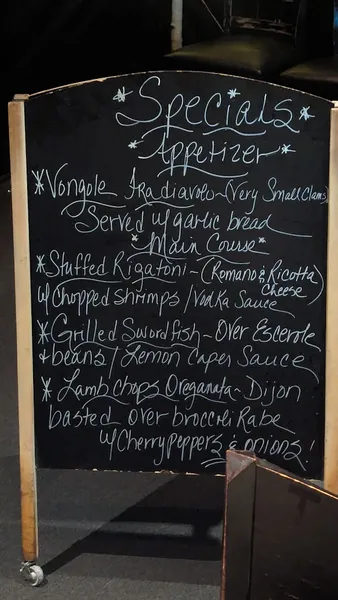 * Specials *
* Appetizer *
* Vongole Fradiavolo ~ (Very Small Clams)
Served w/ garlic bread
* Main Course *
* Stuffed Rigatoni - (Romano & Ricotta Cheese)
w/ Chopped shrimps / Vodka Sauce
* Grilled Swordfish ~ Over Escerole
+ beans / Lemon Caper Sauce
* Lamb chops Oreganata - Dijon
basted over broccili Rabe
w/ Cherry Peppers & onions!